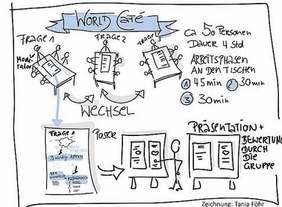 WORLD CAFÉ
FRAGE 1
FRAGE 2
FRAGE 3
ca 50 PERSONEN
DAUER 4 std
ARBEITSPHASEN
AN DEN TISCHEN
1 45 min 2 30 min
3 30 min
WECHSEL
FRAGE 1
Poster
PRÄSENTATION +
BEWERTUNG
DURCH
DIE
GRUPPE
Zeichnung: Tanja Föhr